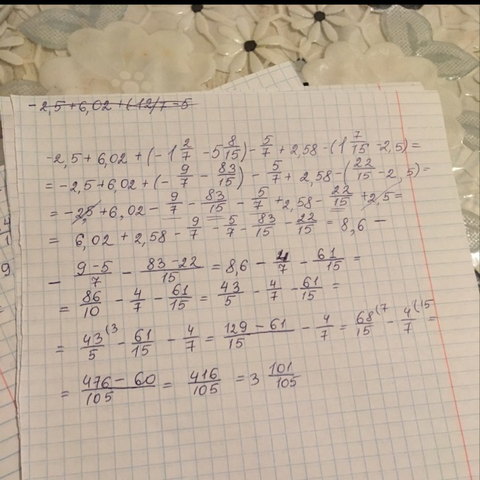 -2,5+6,02+(-12)/7-5
-2,5+6,02+(-1 2/7 -5 8/15)-5/7+2,58-(1 7/15-2,5)=
=-2,5+6,02+(-9/7-83/15)-5/7+2,58-(22/15-2,5)=
=-2,5+6,02-9/7-83/15-5/7+2,58-22/15+2,5=
=6,02+2,58-9/7-5/7-83/15-22/15=8,6-
-(9-5)/7-(83-22)/15=8,6-4/7-61/15=
=86/10-4/7-61/15=43/5-4/7-61/15=
=43(3/5-61/15-4/7=(129-61)/15-4/7=68(7/15-4(15/7=
=(476-60)/105=416/105=3 101/105